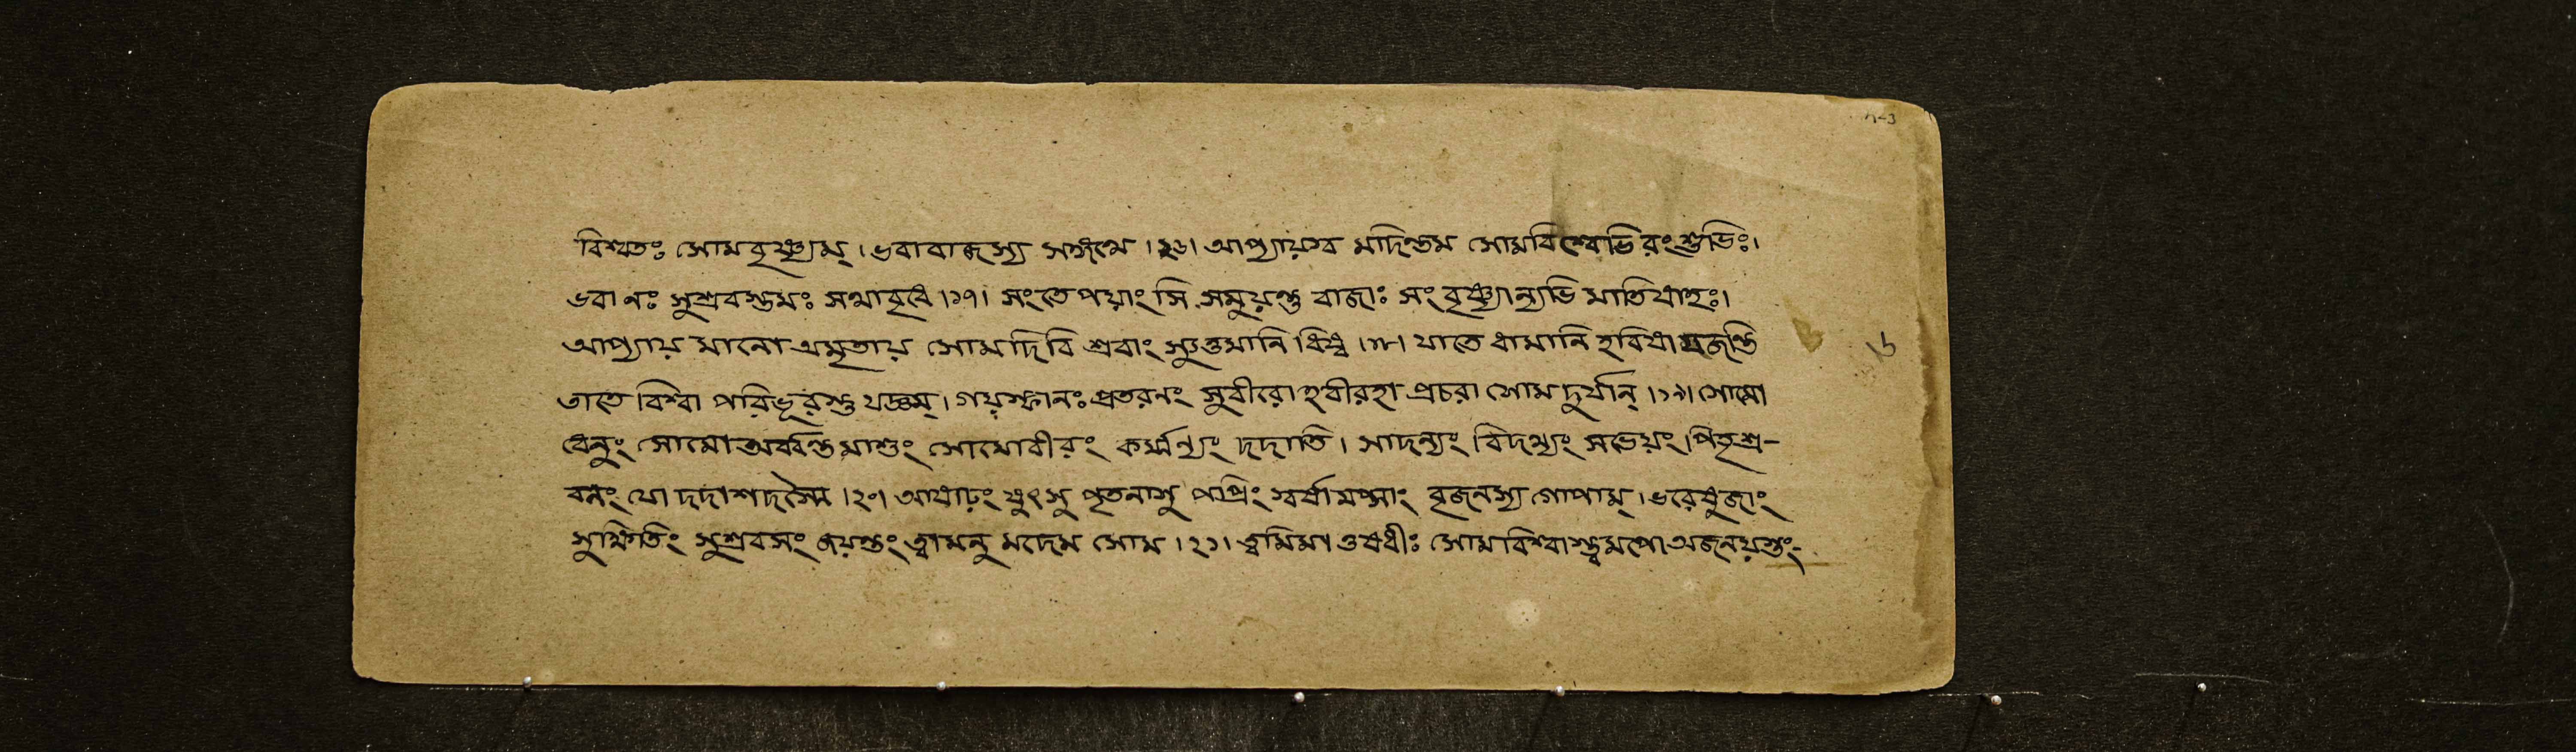 বিশ্বতঃ সোমবৃষ্ণ্যম্ । ভবাবাজস্য সঙ্গমে । ২৬। আপ্যায়স্ব মদিন্তম সোমবিশ্বেভিরংশুভিঃ।
ভবা নঃ সুশ্রবস্তমঃ সখাবৃধে ।১৭। সংতে পয়াংসি সমুয়ন্তু বাজাঃ সং বৃষ্ণ্যান্যভি মাতিষাহঃ।
আপ্যায় মানো অমৃতায় সোমদিবি শ্রবাং স্যুত্তমানি ধিষ্ব ।১৮। যাতে ধামানি হবিষা যজন্তি
তাতে বিশ্বা পরিভূরস্তু যজ্ঞম্ । গয়স্ফানঃ প্রতরনং সুবীরো হবীরহা প্রচরা সোম দুর্যান্ ।১৯। সোমো
ধেনুং সোমো অর্বন্তিমাশুং সোমোবীরং কর্মান্যং দদাতি । সাদন্যং বিদথ্যং সভেয়ং পিতৃশ্র-
বনং যো দদাশদস্মৈ ।২০। আষাঢ়ং যুৎসু পৃতনাসু পপ্রিং স্বর্ষামপ্সাং বৃজনস্য গোপাম্ । ভরেষুজাং
সুক্ষিতিং সুশ্রবসং জয়ন্তং ত্বামনু মদেম সোম । ২১। ত্বমিমা ওষধীঃ সোমবিশ্বাস্ত্বমপো অজনয়স্তং-
৬